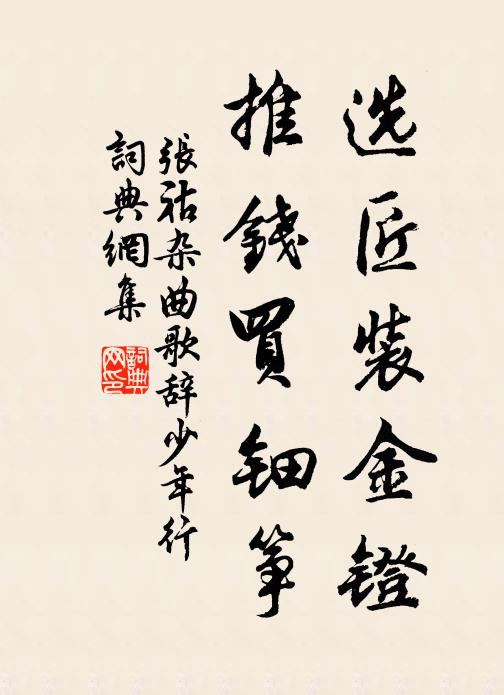 选匠装金镫
推錢買钿筝
張祜杂曲歌辞少年行
詞典網集
詞典网印